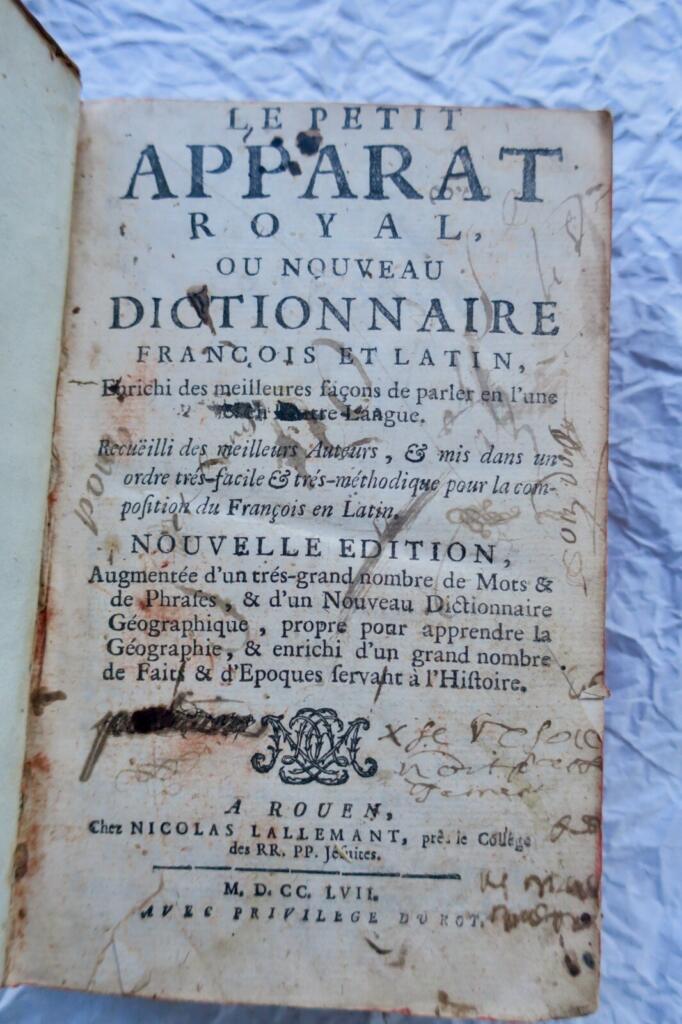 LE PETIT
APPARAT
ROYAL,
OU NOUVEAU
DICTIONNAIRE
FRANCOIS ET LATIN,
Enrichi des meilleures façons de parler en l'une
& en l'autre Langue.
Recuëilli des meilleurs Auteurs, & mis dans un
ordre trés-facile & trés-méthodique pour la com-
poſition du François en Latin.
NOUVELLE EDITION,
Augmentée d'un trés-grand nombre de Mots &
de Phraſes, & d'un Nouveau Dictionnaire
Géographique, propre pour apprendre la
Géographie, & enrichi d'un grand nombre
de Faits & d'Epoques ſervant à l'Hiſtoire.
pour
A ROUEN,
Chez NICOLAS LALLEMANT, prê. le Collége
des RR. PP. Jéſuites.
M. D. CC. LVII.
AVEC PRIVILEGE DU ROY.